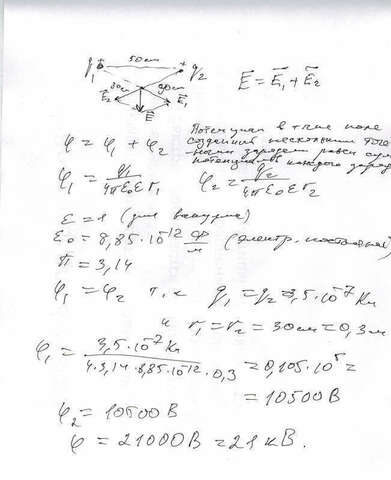 q₁ + 50см + q₂
30см 30см
E⃗₂ E⃗₁ E⃗
E⃗ = E⃗₁ + E⃗₂
Потенциал в точке поля
φ = φ₁ + φ₂ созданный несколькими точе
ными зарядами равен сумме
потенциалов каждого заряда
φ₁ = q₁/4πε₀εr₁ φ₂ = q₂/4πε₀εr₂
ε = 1 (для вакуума)
ε₀ = 8,85·10⁻¹² Ф/м (электр. постоянная)
π = 3,14
φ₁ = φ₂ т.к q₁ = q₂ = 3,5·10⁻⁷ Кл
и r₁ = r₂ = 30см = 0,3м
φ₁ = 3,5·10⁻⁷ Кл/4·3,14·8,85·10⁻¹²·0,3 = 0,105·10⁵ =
= 10500 В
φ₂ = 10500 В
φ = 21000 В = 21 кВ.